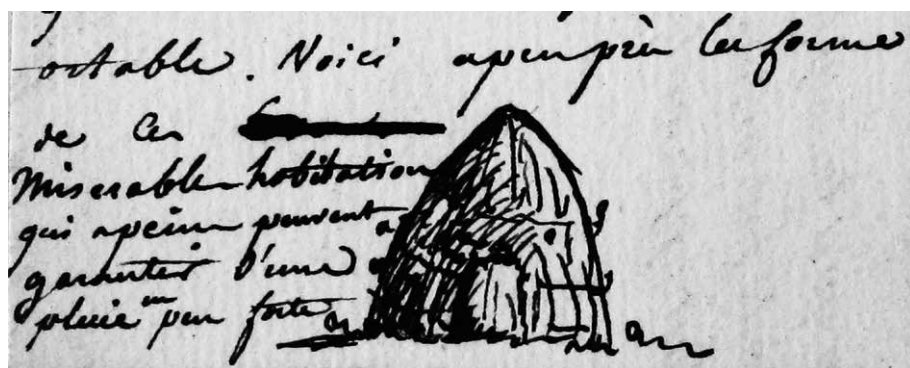 octable. Voici apeuprès la forme
de ces
Miserable habitation
qui apeine peuvent
garantir d'une
pluie un peu forte